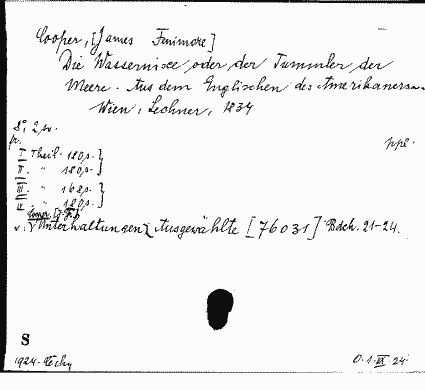 Cooper, [James Fenimore]
Die Wassernixe oder der Tummler der
Meere. Aus dem Englischen des Amerikaners
Wien, Lechner, 1834
8°, 2 sv.
fr. ppl.
I Theil. 180 p.
II. " 180 p.
III. " 168 p.
IV. " 180 p.
v. Unterhaltungen Ausgewählte [76031] Bdch. 21-24.
S
1924. Techy O.1.IX.24